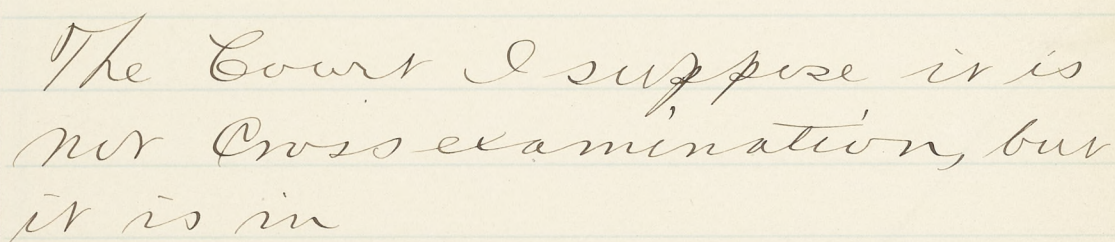 The Court I suppose it is
not Cross examination, but
it is in